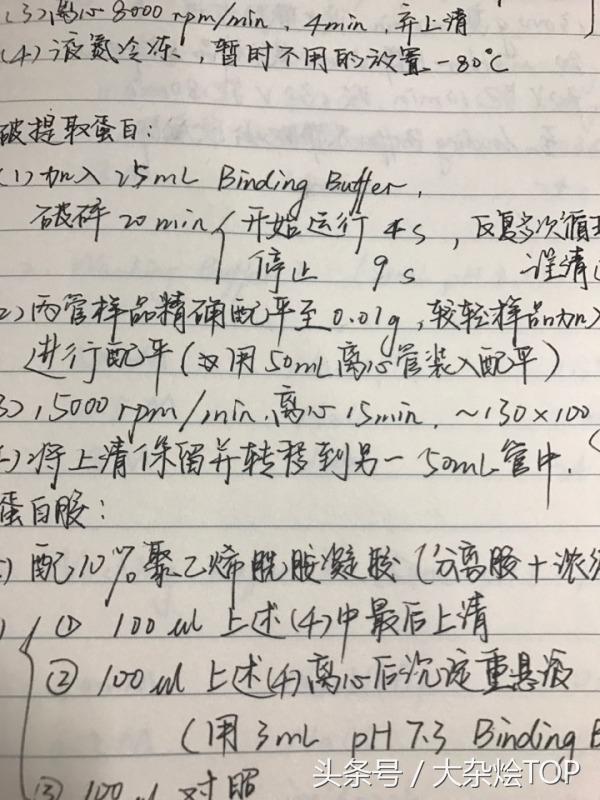 (3)离心 8000 rpm/min, 4min, 弃上清
(4)液氮冷冻,暂时不用的放置 -80℃
破提取蛋白:
(1)加入 25mL Binding Buffer,
破碎 20 min { 开始运行 4s, 反复多次循环
停止 9s
2)两管样品精确配平至 0.01g,较轻样品加入
进行配平(用50mL离心管装入配平)
3)15000 rpm/min 离心 15min. ~130×100
将上清保留并转移到另一50mL管中.
蛋白胶:
)配10%聚乙烯酰胺凝胶(分离胶+浓
① 100ul 上述(4)中最后上清
② 100ul 上述(4)离心后沉淀重悬液
(用 3mL pH 7.3 Binding B
③ 100ul 对照
头条号 / 大杂烩TOP